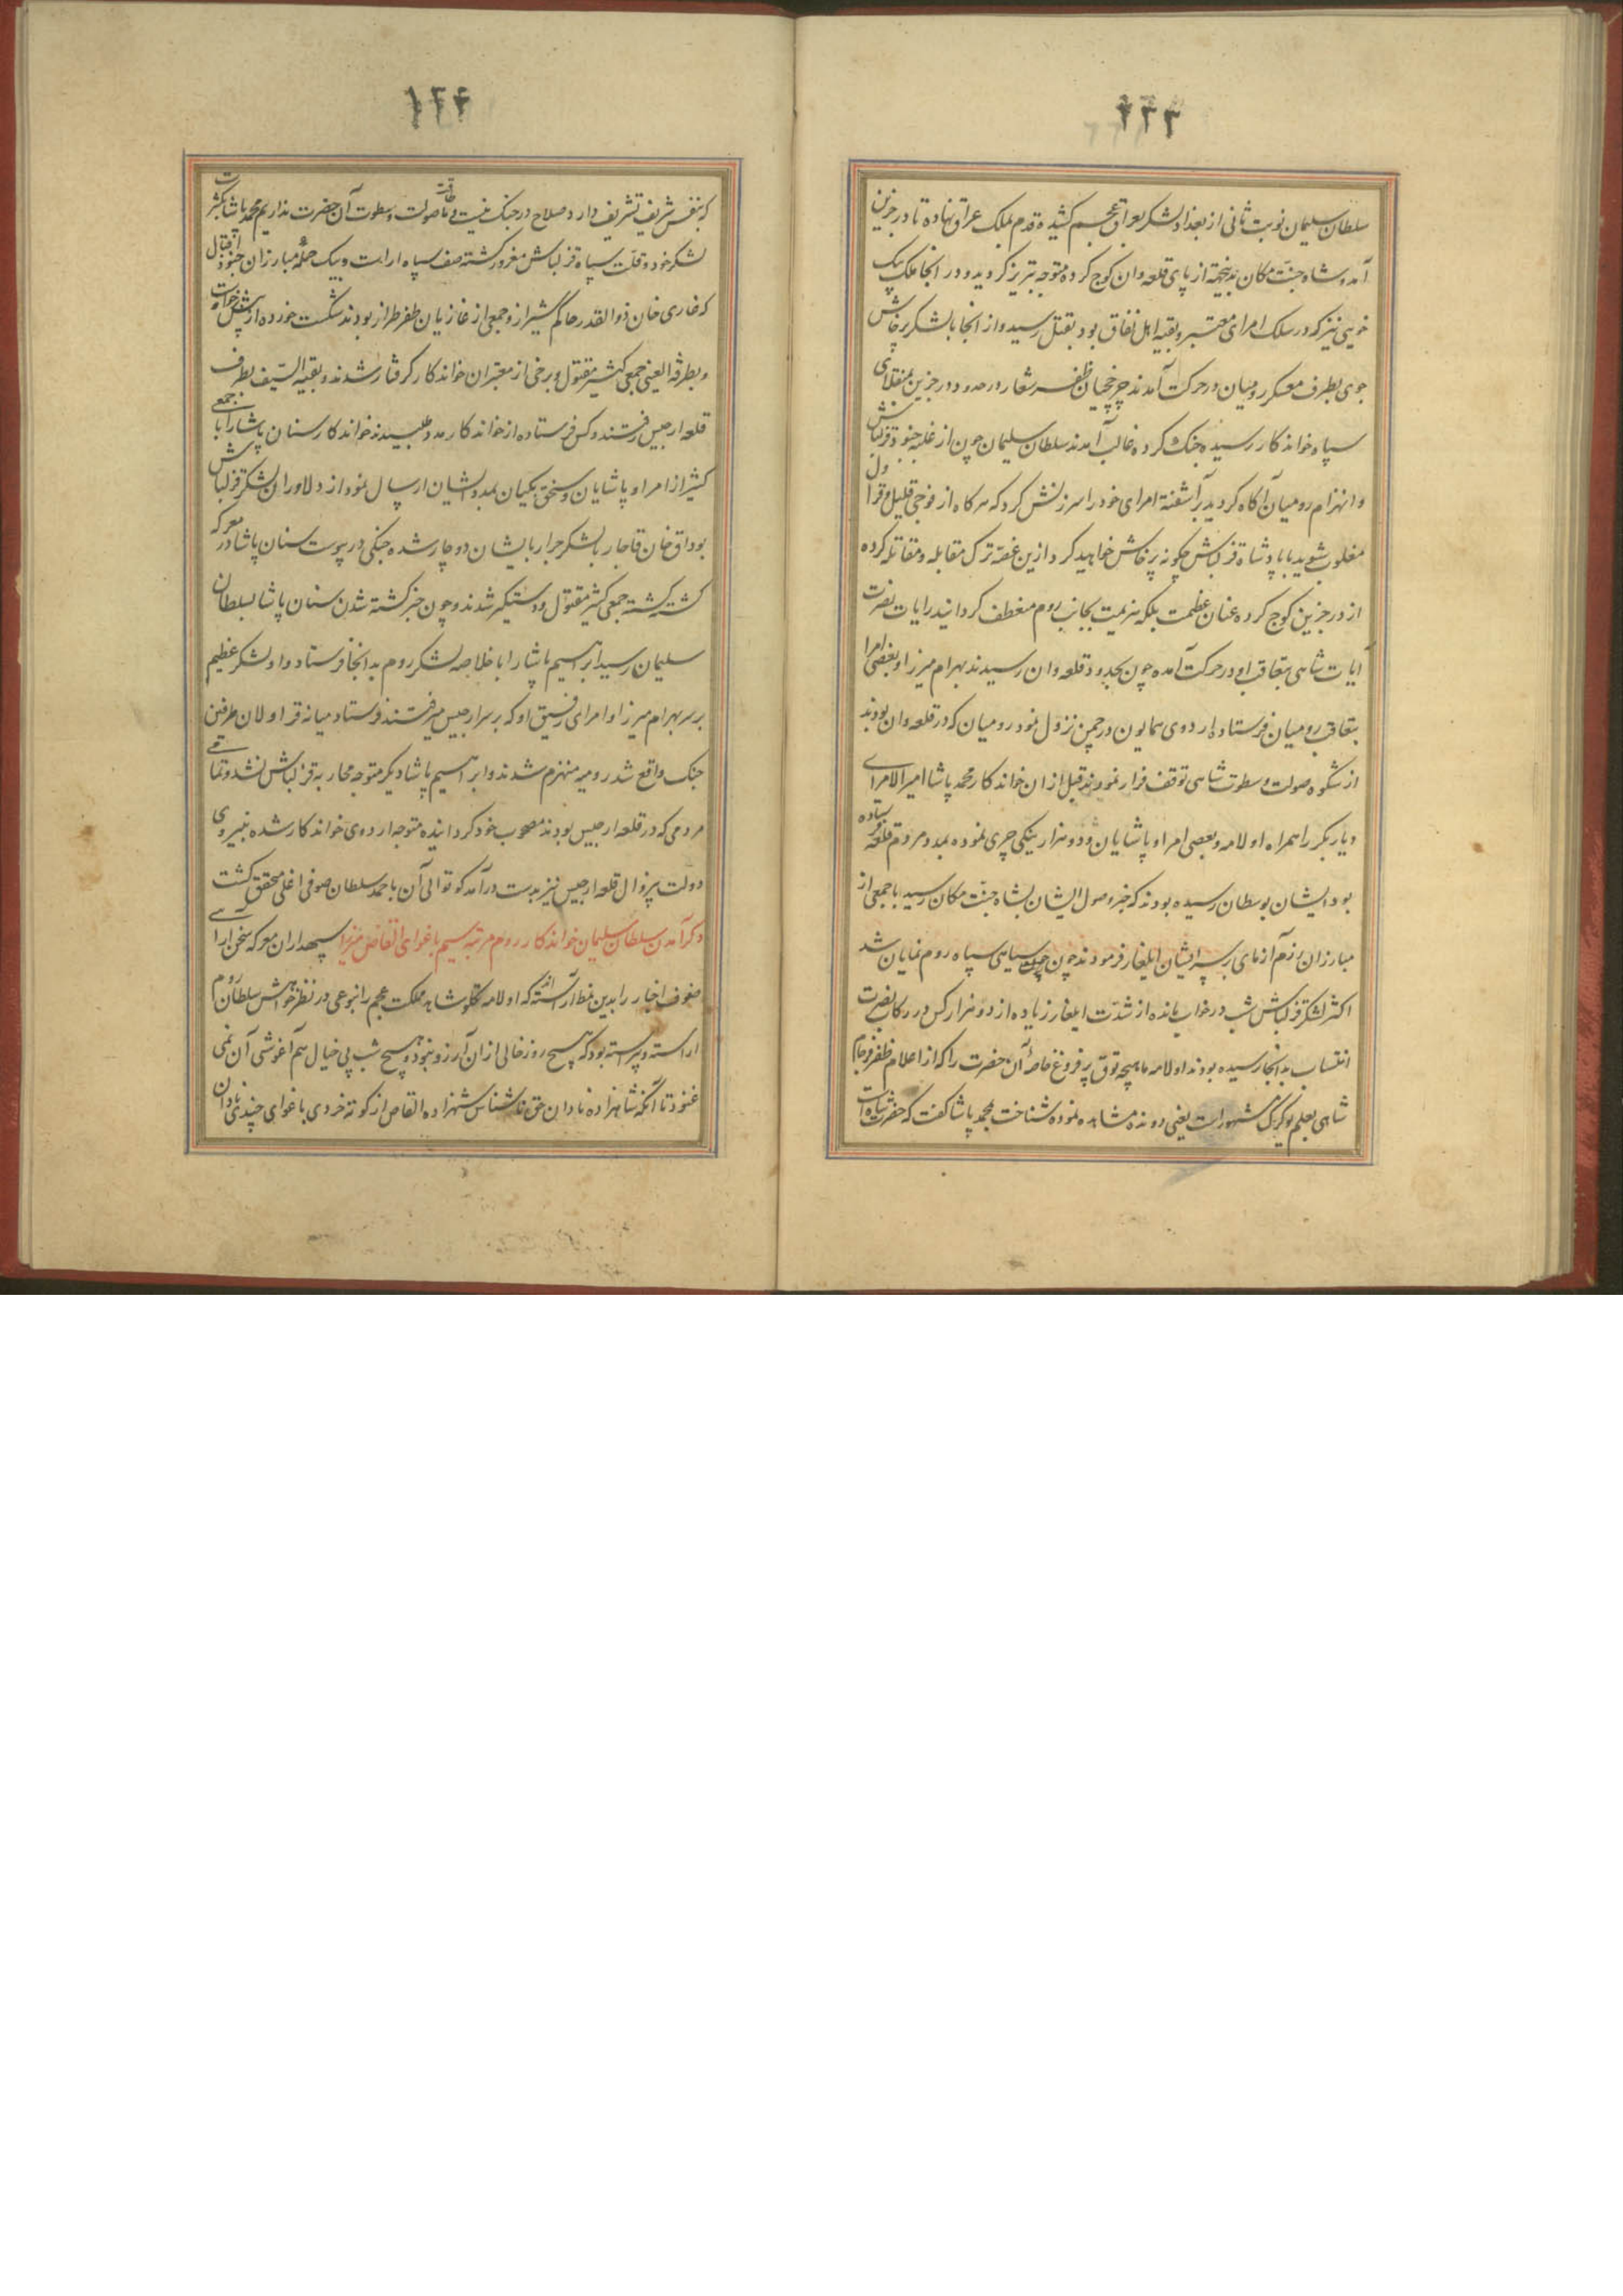 ۱۲۳
سلطان سلیمان نوبت ثانی از بغداد لشکر بعراق عجم کشیده قدم بملک عراق نهاده تا درجزین
آمد و شاه جنت مکان بدینجهة از پای قلعه وان کوچ کرده متوجه تبریز کردید و در انجا ملک بیک
خویی نیز که در سلک امرای معتبر و بقیه اهل نفاق بود بقتل رسید و از انجا با لشکر پرخاش
جوی بطرف معسکر رومیان در حرکت آمدند چرخچیان ظفر شعار در حدود درجزین بمنقلای
سپاه خواندکار رسیده جنک کرده غالب آمدند سلطان سلیمان چون از غلبه جنود قزلباش
و انهزام رومیان آکاه کردید برآشفته امرای خود را سرزنش کرد که هر کاه از فوجی قلیل قراول
مغلوب شوید با پادشاه قزلباش چکونه پرخاش خواهید کرد ازین غصه ترک مقابله و مقاتله کرده
از درجزین کوچ کرده عنان عظمت بلکه هزیمت بجانب روم منعطف کردانید رایات نصرت
آیات شاهی بتعاقب او در حرکت آمده چون بحدود قلعه وان رسیدند بهرام میرزا و بعضی امرا
بتعاقب رومیان فرستاده اردوی همایون در چمن نزول نمود رومیان که در قلعه وان بودند
از شکوه صولت و سطوت شاهی توقف فرار نمودند قبل ازان خواندکار محمد پاشا امیر الامرای
دیار بکر را همراه اولامه و بعضی امرا و پاشایان و دو هزار ینکی چری نموده بمدد مردم قلعه فرستاده
بود ایشان بوسطان رسیده بودند که خبر وصول ایشان بشاه جنت مکان رسید با جمعی از
مبارزان رزم آزمای بر سر ایشان ایلغار فرمودند چون سیاهی سپاه روم نمایان شد
اکثر لشکر قزلباش شب در خواب مانده از شدت ایلغار زیاده از دو هزار کس در رکاب نصرت
انتساب بدانجا رسیده بودند اولامه ماهیچه توق پر فروغ خاصه آن حضرت را که از اعلام ظفر فرجام
شاهی بعلم بوکرک مشهور است یعنی دونده مشاهده نموده شناخت بمحمد پاشا کفت که حضرت شاه است
۱۲۴
که بنفس شریف تشریف دارد صلاح در جنک نیست و ما طاقت صولت و سطوت آن حضرت نداریم محمد پاشا بکثرت
لشکر خود و قلت سپاه قزلباش مغرور کشته صف سپاه اراست و بیک حمله مبارزان جنود اقبال
که غازی خان ذوالقدر حاکم شیراز و جمعی از غازیان ظفر طراز بودند شکست خورده از پیش برخاست
و بطرفة العینی جمعی کثیر مقتول و برخی از معتبران خواندکار کرفتار شدند و بقیه السیف بطرف
قلعه ارجیس رفتند و کس فرستاده از خواندکار مدد طلبیدند خواندکار سنان پاشا را با جمعی
کثیر از امرا و پاشایان و سنجق بکیان بمدد ایشان ارسال نمود از دلاوران لشکر قزلباش
بوداق خان قاجار با لشکر جرار بایشان دوچار شده جنکی در پیوست سنان پاشا در معرکه
کشته کشته جمعی کثیر مقتول و دستکیر شدند و چون خبر کشته شدن سنان پاشا بسلطان
سلیمان رسید ابراهیم پاشا را با خلاصه لشکر روم بدانجا فرستاد و او لشکر عظیم
بر سر بهرام میرزا و امرای رفیق او که بر سر ارجیس میرفتند فرستاد میانه قراولان طرفین
جنک واقع شد رومیه منهزم شدند و ابراهیم پاشا دیکر متوجه محاربه قزلباش نشد و تمامی
مردمی که در قلعه ارجیس بودند مصحوب خود کردانیده متوجه اردوی خواندکار شده بنیروی
دولت بیزوال قلعه ارجیس نیز بدست درآمد کوتوالی آن باحمد سلطان صوفی اغلی محقق کشت
ذکر آمدن سلطان سلیمان خواندکار روم مرتبه سیم باغوای القاص میرزا سپهداران معرکه سخن آرایی
صفوف اخبار را بدین نمط آراسته اند که اولامه تکلو شاهد مملکت عجم را بنوعی در نظر خواهش سلطان روم
اراسته و پیراسته بود که هیچ روز خالی ازان آرزو نبود و هیچ شب بی خیال هم آغوشی آن نمی
غنود تا آنکه شاهزاده نادان حق ناشناس شهزاده القاص از کوته خردی باغوای چندی نادان